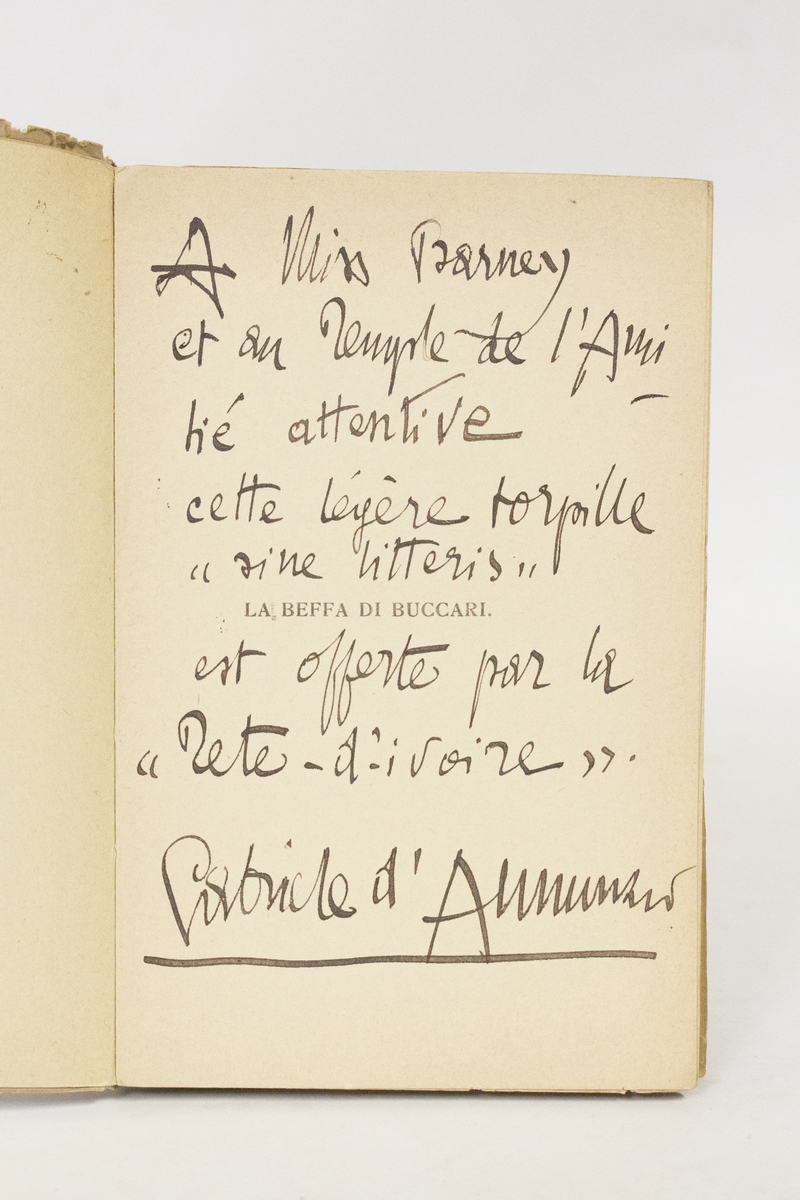 A Miss Barney
et au Temple de l'Ami-
tié attentive
cette légère torpille
“ sine litteris ”
LA BEFFA DI BUCCARI.
est offerte par la
« Tete-d'ivoire ».
Gabriele d'Annunzio